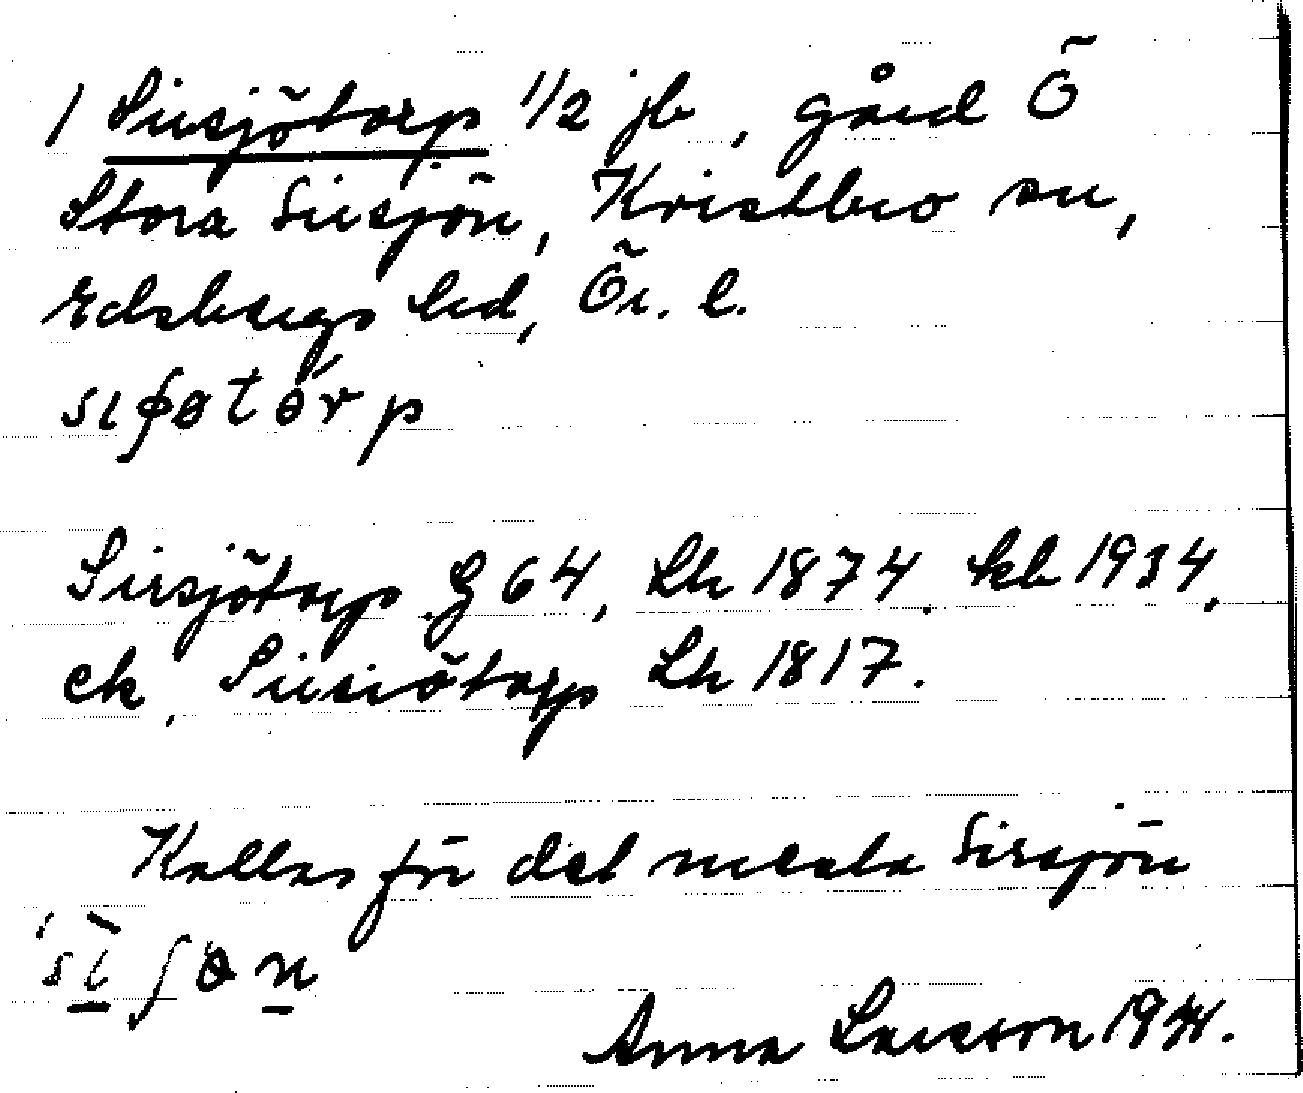 1 Sirsjötorp 1/2 jb, gård Ö
Stora Sirsjön, Kvistbro sn,
Edsbergs hd, Ör. l.
sıʃɵtɵ́rp
Sirsjötorp G 64, Lh 1874. kb 1934.
ek, Sirsiötorp Lh 1817.
Kallas för det mesta Sirsjön
'si ʃɵn
Anna Larsson 1934.